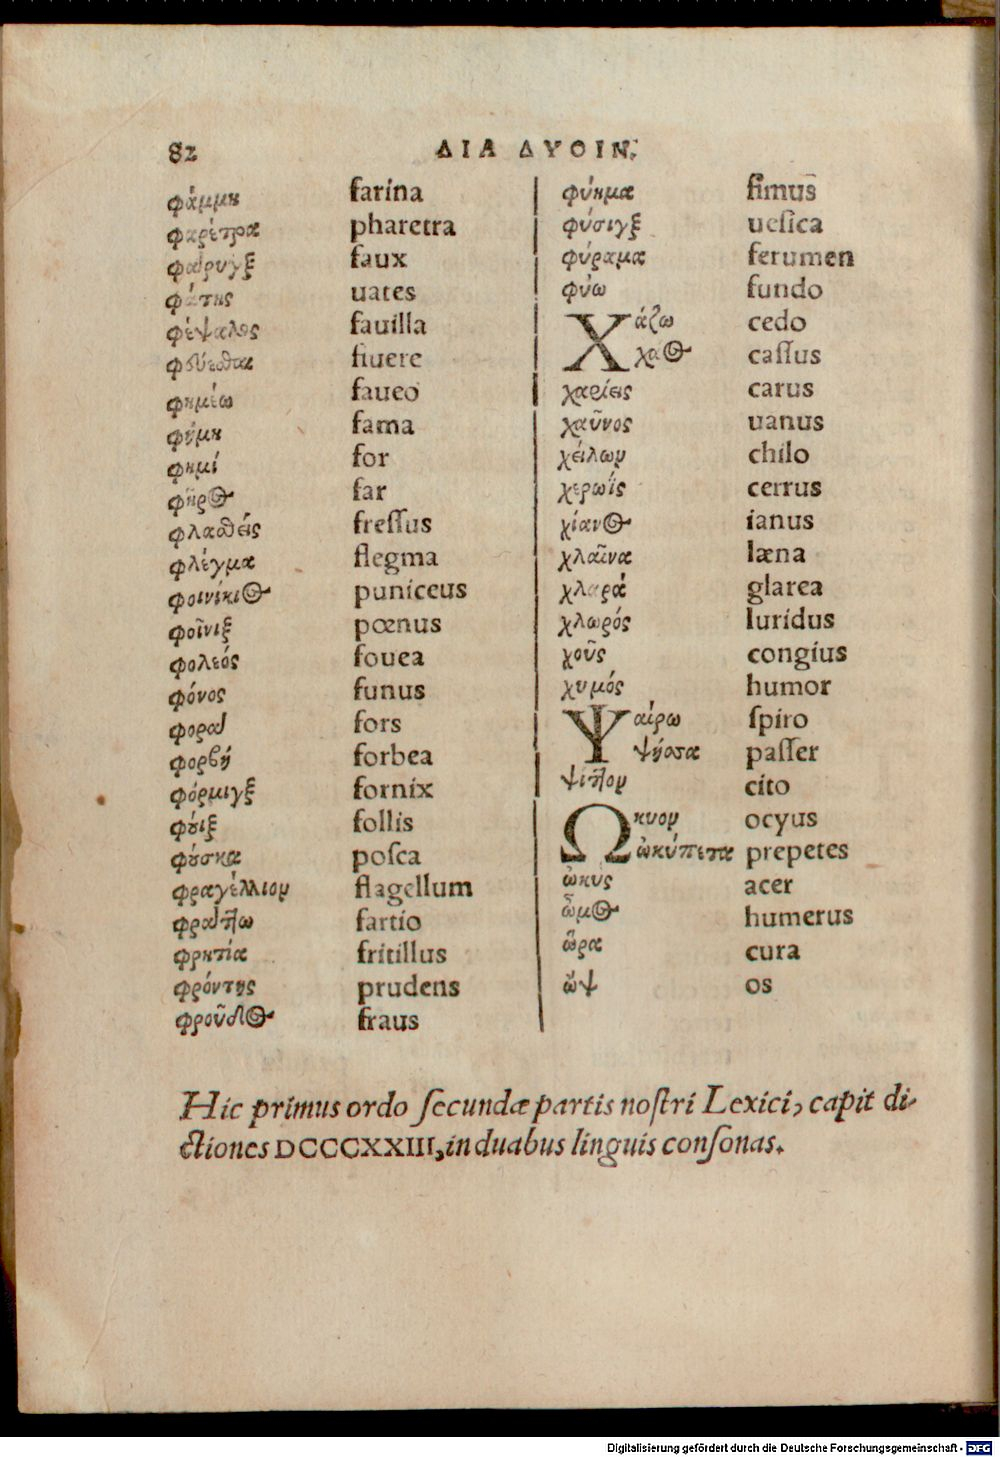 82 ΔΙΑ ΔΥΟΙΝ.
φάμμη farina
φαρέτρα pharetra
φάρυγξ faux
φάτης uates
φέψαλος fauilla
φεύεσθαι fluere
φημέω faueo
φήμη fama
φημί for
φῆρος far
φλασθείς fressus
φλέγμα flegma
φοινίκιος puniceus
φοῖνιξ pœnus
φολεός fouea
φόνος funus
φορὰ fors
φορβή forbea
φόρμιγξ fornix
φούιξ follis
φούσκα posca
φραγέλλιον flagellum
φράττω fartio
φρητία fritillus
φρόντης prudens
φροῦδος fraus
φύκμα fimus
φύσιγξ uesica
φύραμα ferumen
φύω fundo
Χάζω cedo
χάος cassus
χαρίεις carus
χαῦνος uanus
χείλων chilo
χερωίς cerrus
χίανος ianus
χλαῖνα læna
χλαρά glarea
χλωρός luridus
χοῦς congius
χυμός humor
Ψαίρω spiro
ψήρσα passer
ψίττον cito
Ωκυον ocyus
ὠκύπετα prepetes
ὠκύς acer
ὦμος humerus
ὥρα cura
ὤψ os
Hic primus ordo secundæ partis nostri Lexici, capit di-
ctiones DCCCXXIII, in duabus linguis consonas.
Digitalisierung gefördert durch die Deutsche Forschungsgemeinschaft - DFG